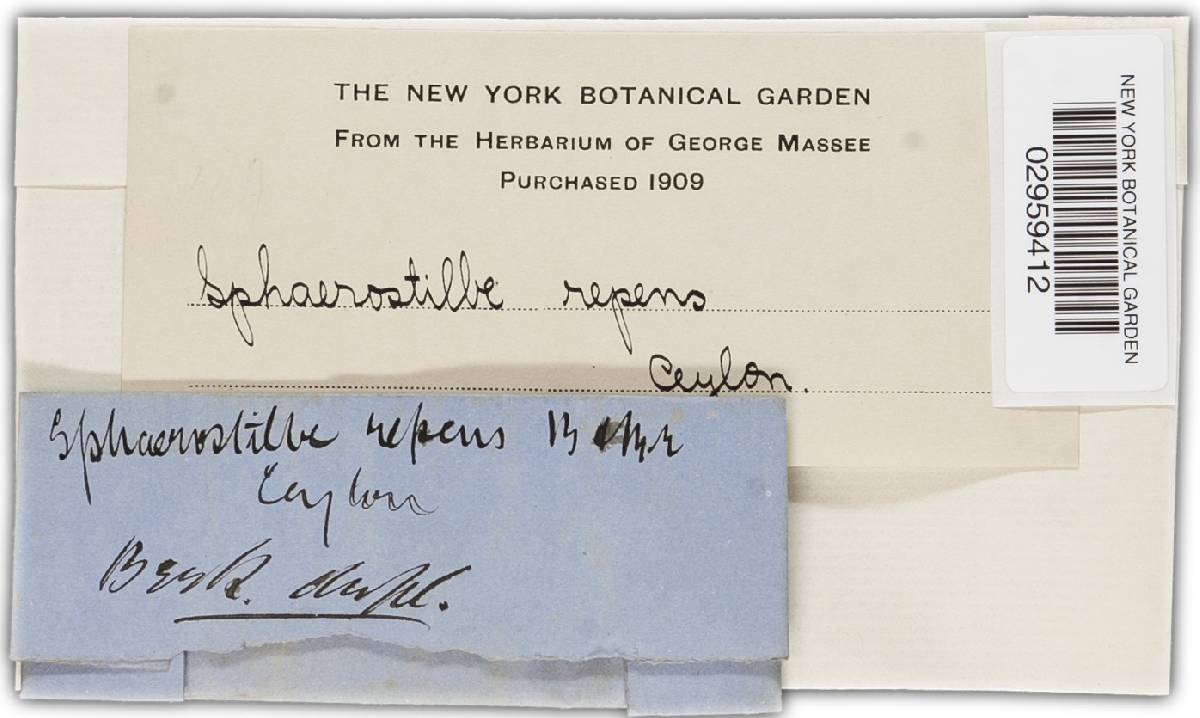 THE NEW YORK BOTANICAL GARDEN
FROM THE HERBARIUM OF GEORGE MASSEE
PURCHASED 1909
Sphaerostilbe repens
Ceylon.
NEW YORK BOTANICAL GARDEN
02959412
Sphaerostilbe repens B & Br
Ceylon
Berk. dupl.